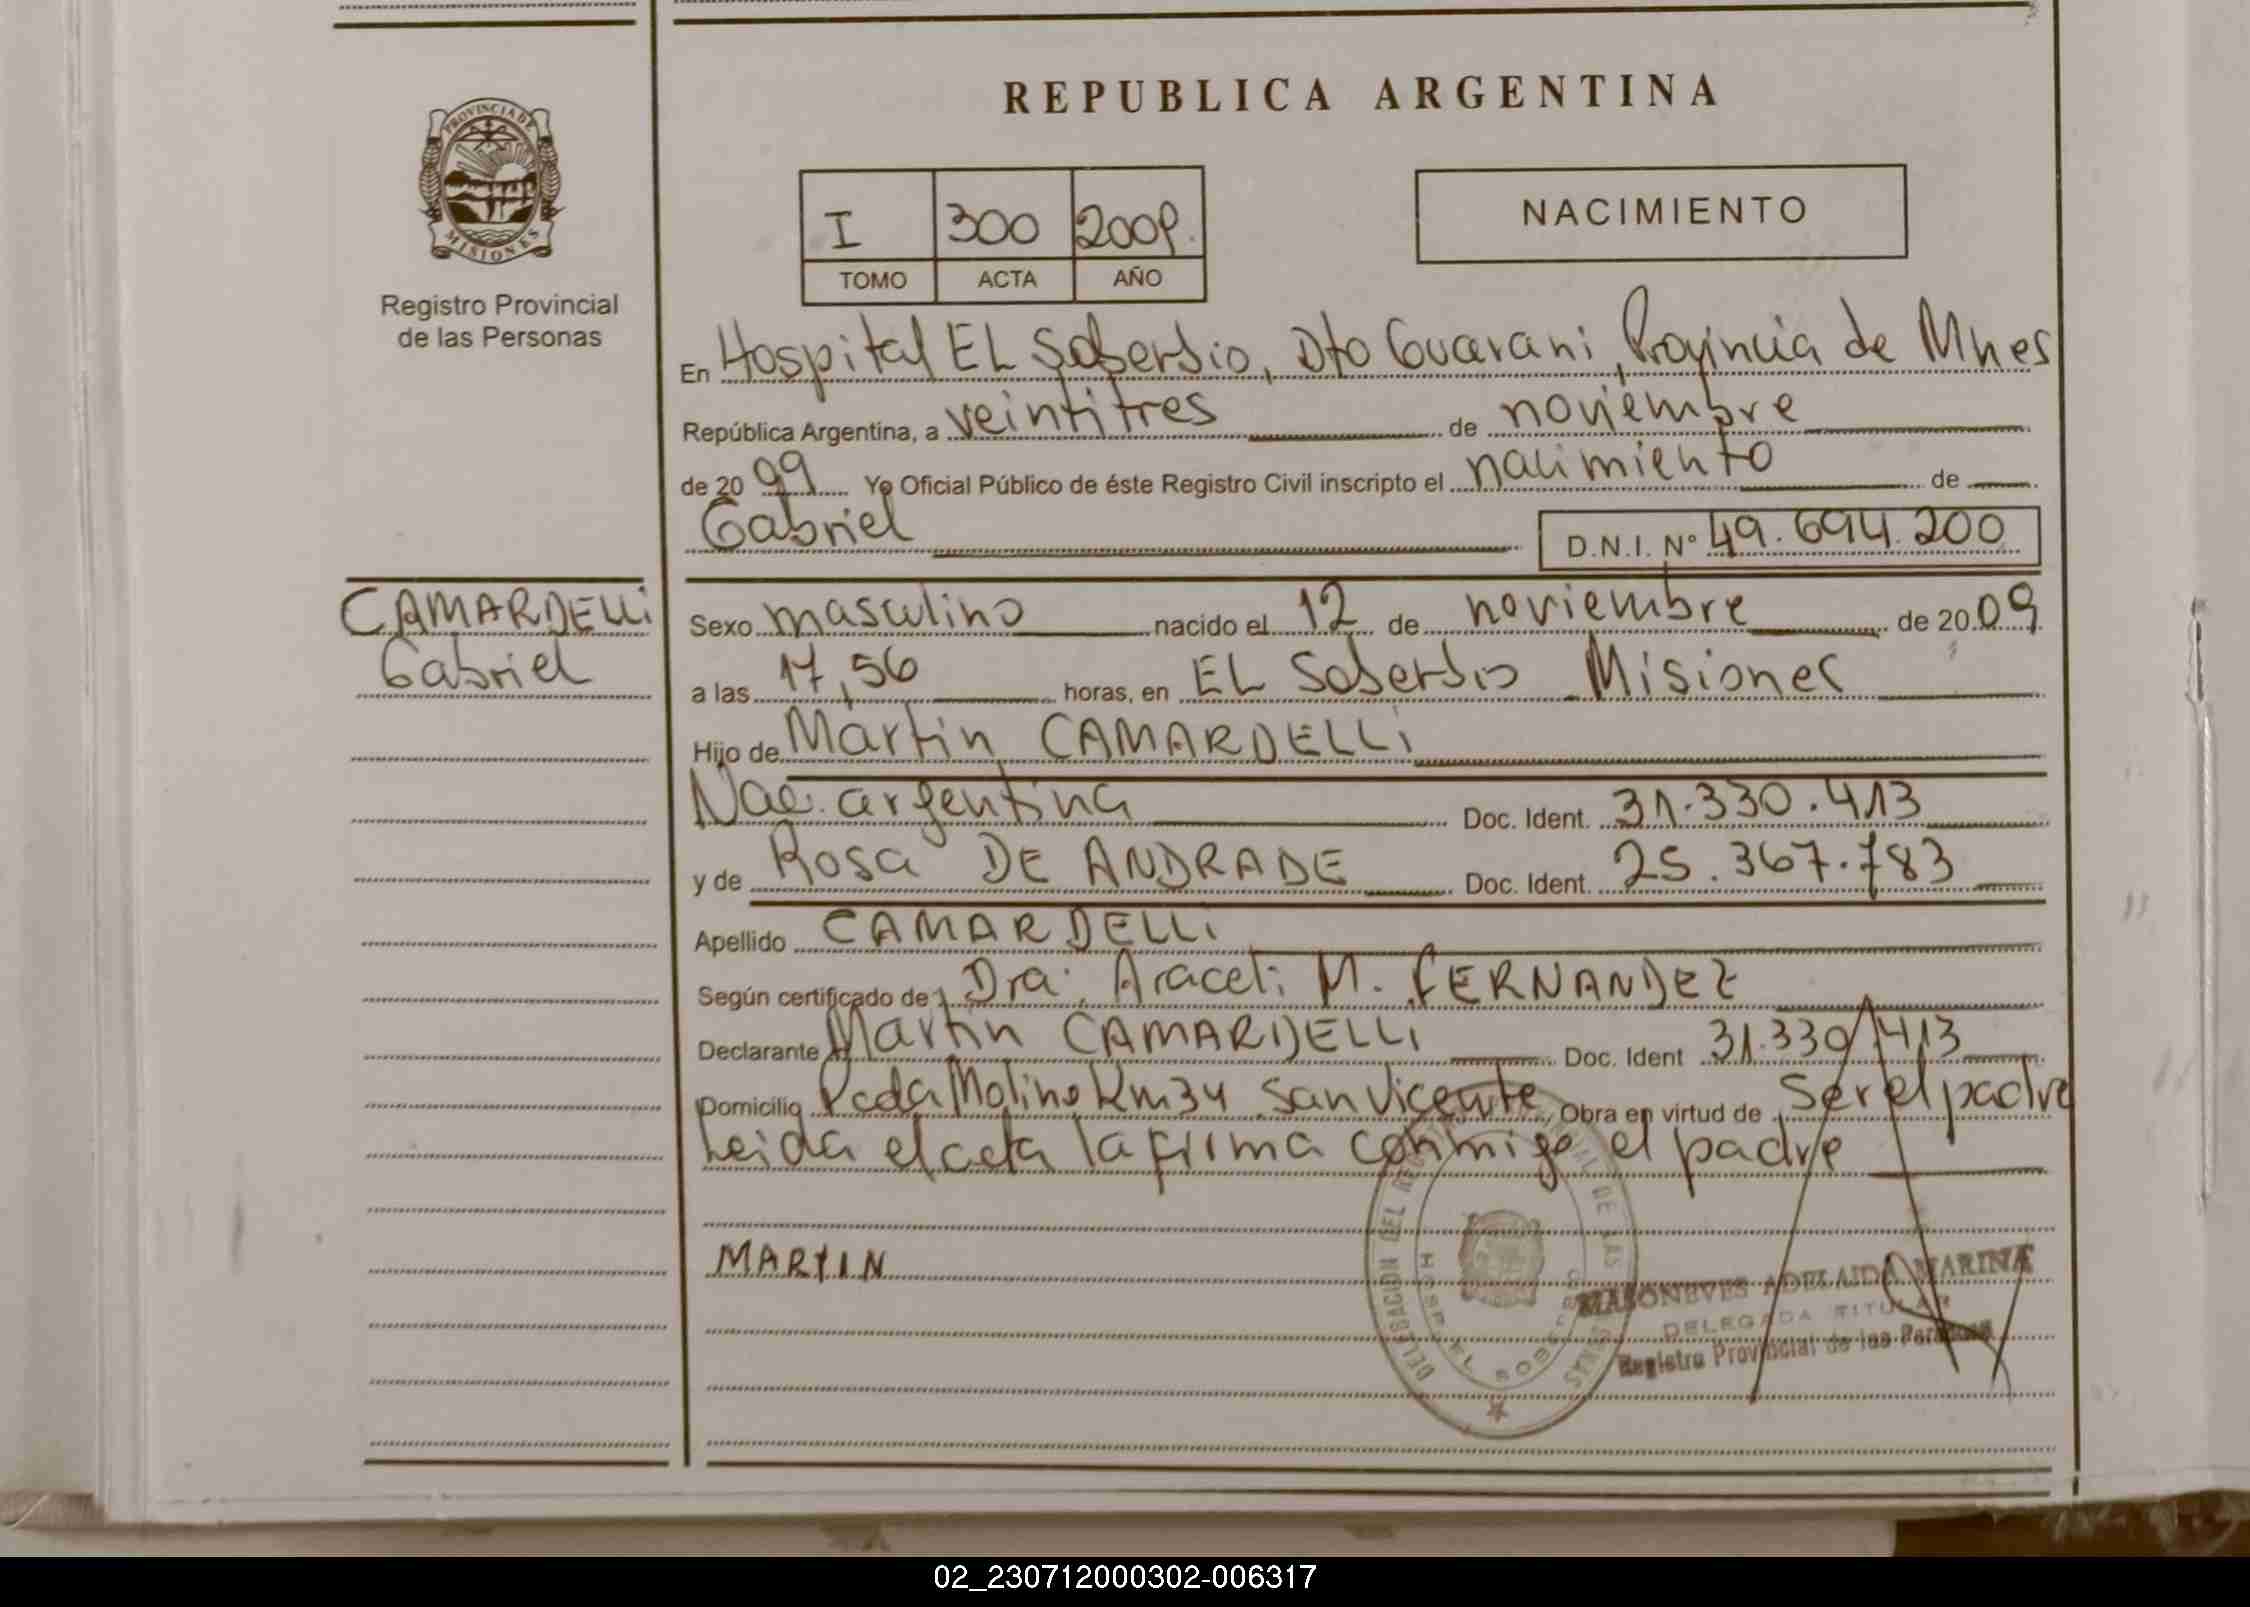 REPUBLICA ARGENTINA
PROVINCIA DE
MISIONES
Registro Provincial
de las Personas
I 300 2009.
TOMO ACTA AÑO
NACIMIENTO
En Hospital EL Soberbio, Dto Guarani, Provincia de Mnes
República Argentina, a veintitres de noviembre
de 20 09 Yo Oficial Público de éste Registro Civil inscripto el nacimiento de
Gabriel D.N.I. Nº 49.694.200
CAMARDELLi
Gabriel
Sexo masculino nacido el 12 de noviembre de 20 09
a las 17,56 horas, en EL Soberbio Misiones
Hijo de Martin CAMARDELLi
Nac. argentina Doc. Ident. 31.330.413
y de Rosa DE ANDRADE Doc. Ident. 25.367.783
Apellido CAMARDELLi
Según certificado de Dra. Araceli M. FERNANDEZ
Declarante Martin CAMARDELLi Doc. Ident 31.330.413
Domicilio Pcda Molino Km 34 San Vicente Obra en virtud de Ser el padre
Leida el acta la firma conmigo el padre
MARTIN
DELEGACION DEL REGISTRO PROVINCIAL DE LAS PERSONAS
HOSP. EL SOBERBIO
MASONEVES ADELAIDA MARINA
DELEGADA TITULAR
Registro Provincial de las Personas
02_230712000302-006317